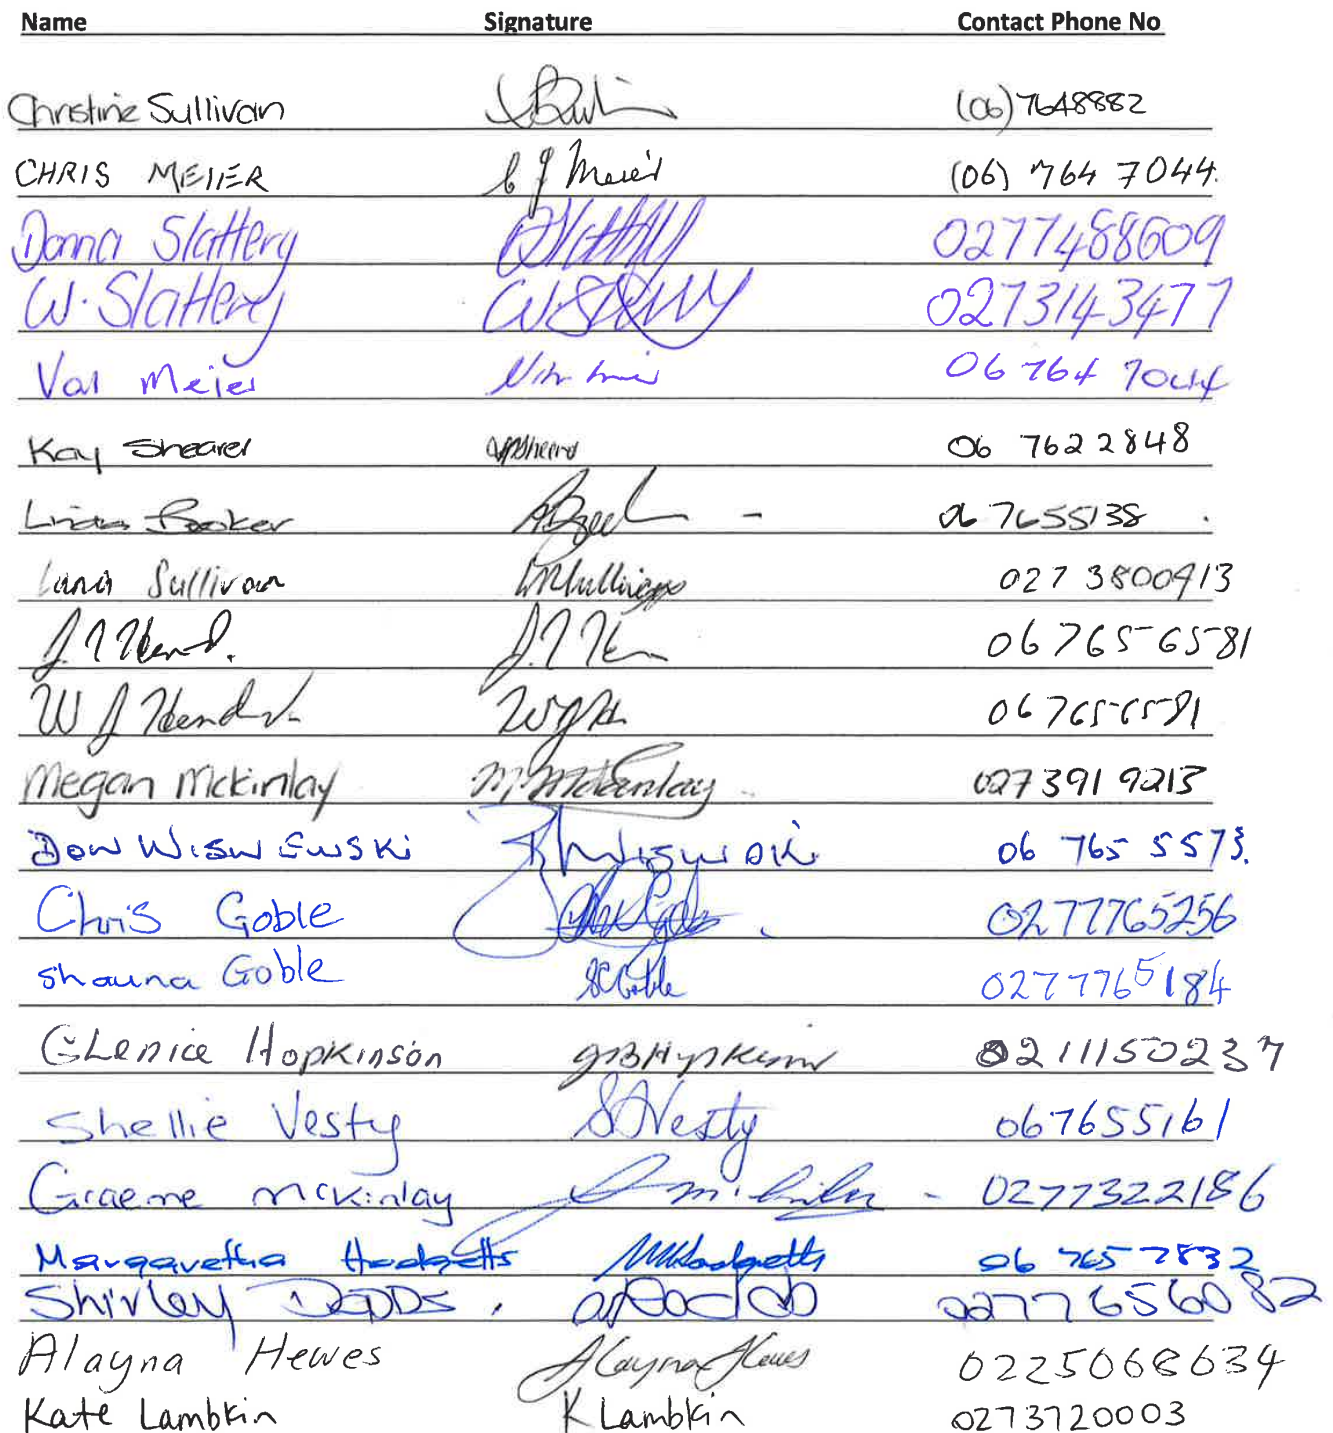 Name Signature Contact Phone No
Christine Sullivan (06) 7648882
CHRIS MEIER C J Meier (06) 764 7044.
Donna Slattery DSlattery 0277488609
W. Slattery W. Slattery 0273143477
Val Meier 06 764 7044
Kay Shearer 06 762 2848
Linda Booker 06 7655138
Lana Sullivan 027 3800913
06 765 6581
W J 06 765 6581
Megan McKinlay M McKinlay 027 391 9213
DON WISNIEWSKI 06 765 5573.
Chris Goble 0277765256
Shauna Goble SCGoble 0277765184
GLenice Hopkinson 02111150237
Shellie Vesty SVesty 067655161
Graeme McKinlay 0277322186
Margaretha Hodgetts MHodgetts 06 765 7832
Shirley DODDS. 02776560 82
Alayna Hewes Alayna Hewes 0225068634
Kate Lambkin K Lambkin 0273720003